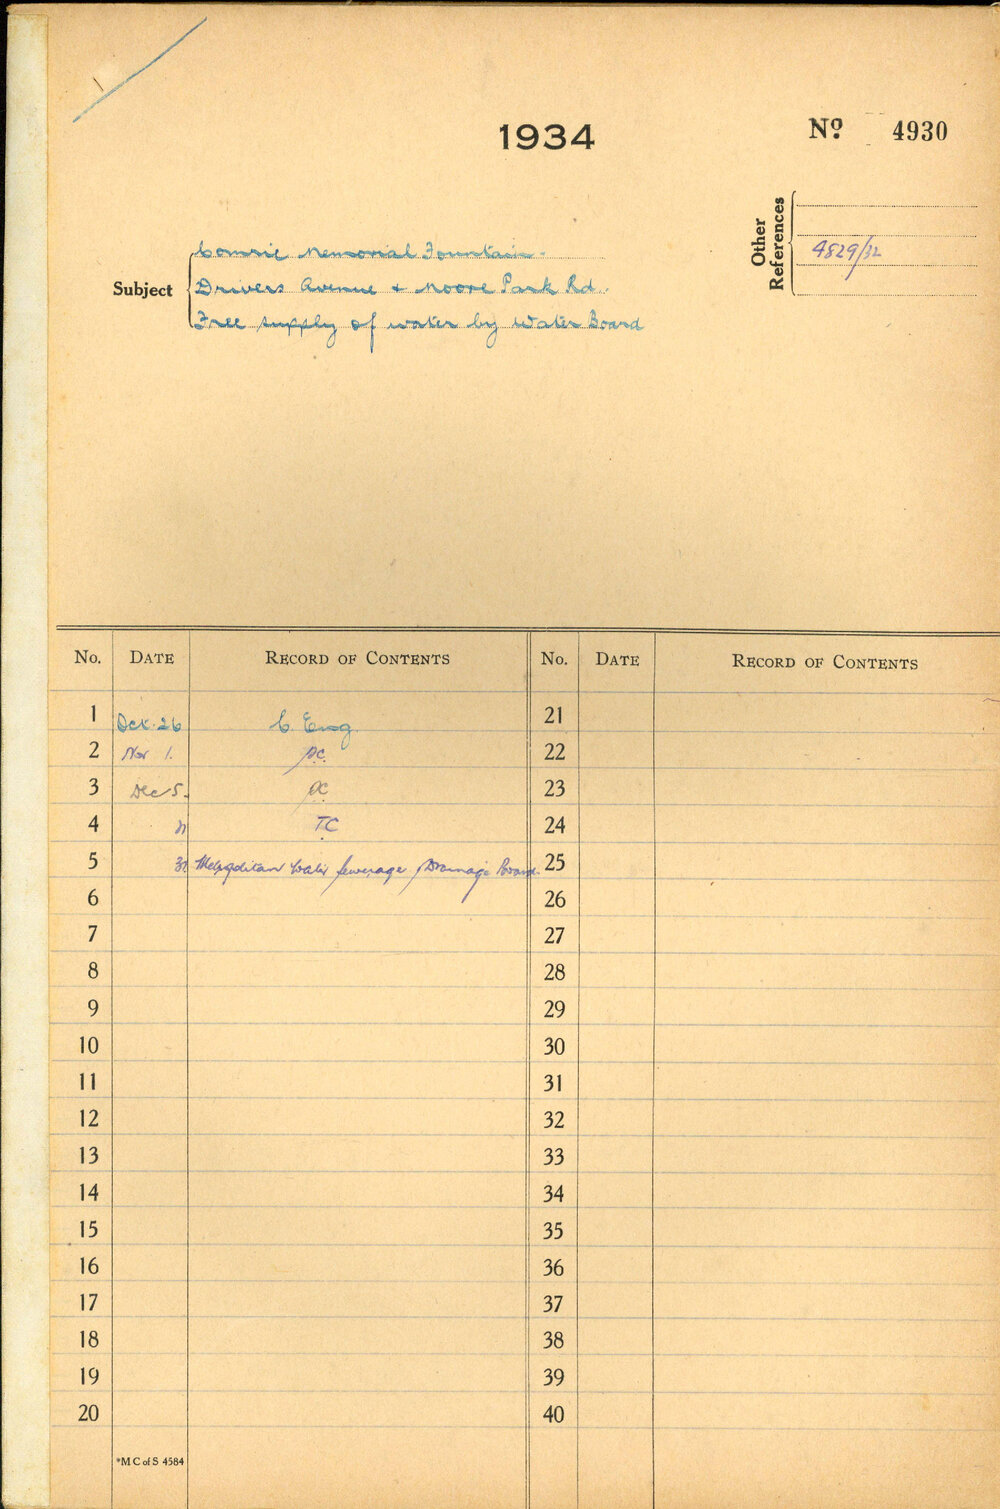 1934
Nº 4930
Other References
4829/32
Subject
Comrie Memorial Fountain.
Drivers Avenue + Moore Park Rd.
Free supply of water by Water Board
No. DATE RECORD OF CONTENTS No. DATE RECORD OF CONTENTS
1 Oct. 26 C Eng 21
2 Nov 1. 22
3 Dec 5. 23
4 TC 24
5 Metropolitan Water Sewerage & Drainage Board. 25
6 26
7 27
8 28
9 29
10 30
11 31
12 32
13 33
14 34
15 35
16 36
17 37
18 38
19 39
20 40
*M C of S 4584